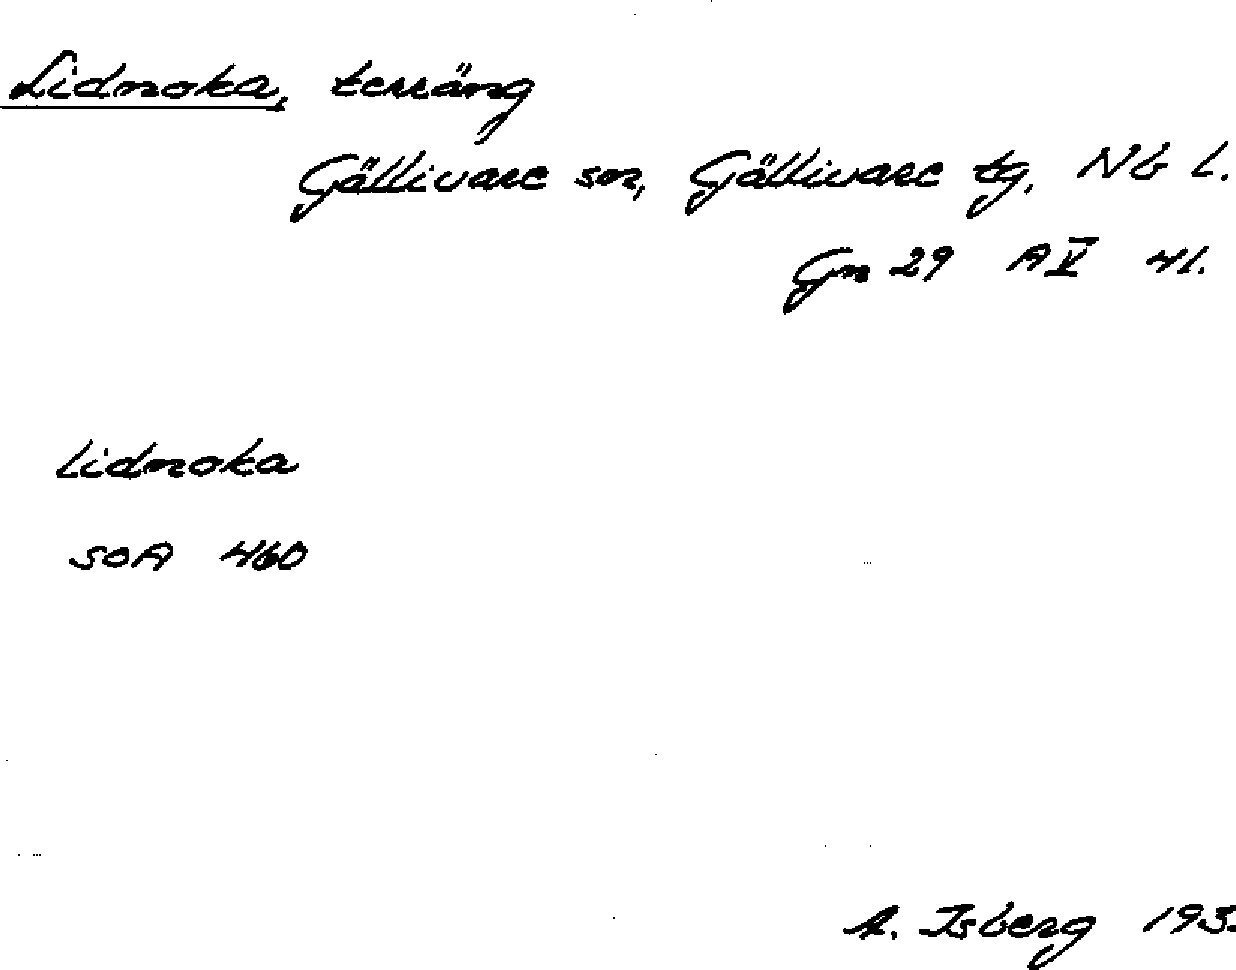 Lidnoka, terräng
Gällivare sn, Gällivare tg, Nb l.
Gn 29 A V 41.
Lidnoka
SOA 460
A. Isberg 193